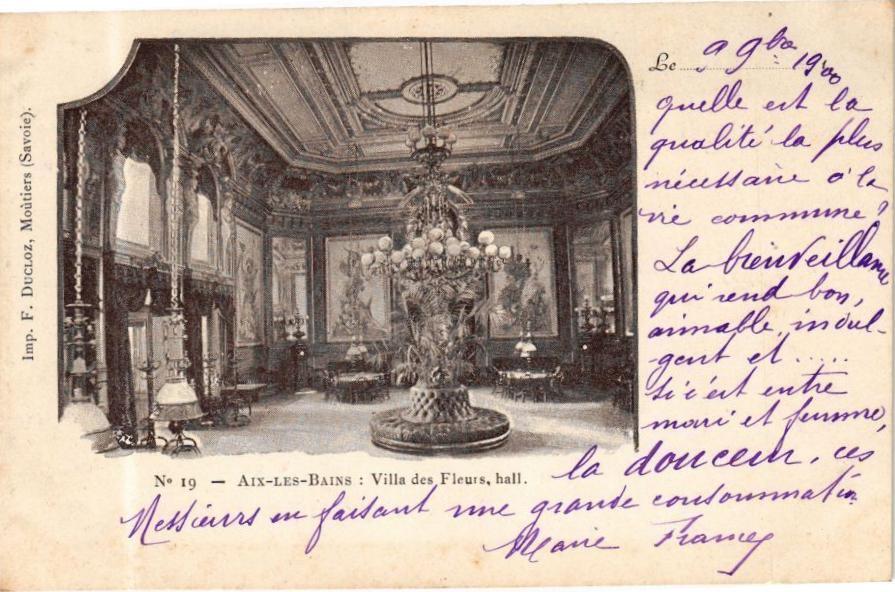 Imp. F. DUCLOZ, Moûtiers (Savoie).
Le 9 9bre 1900
quelle est la
qualité la plus
nécessaire à la
vie commune ?
La bienveillance
qui rend bon,
aimable, indul-
gent et .....
si c'est entre
mari et femme,
la douceur, ces
Messieurs en faisant une grande consommation
Marie
No 19 — AIX-LES-BAINS : Villa des Fleurs, hall.